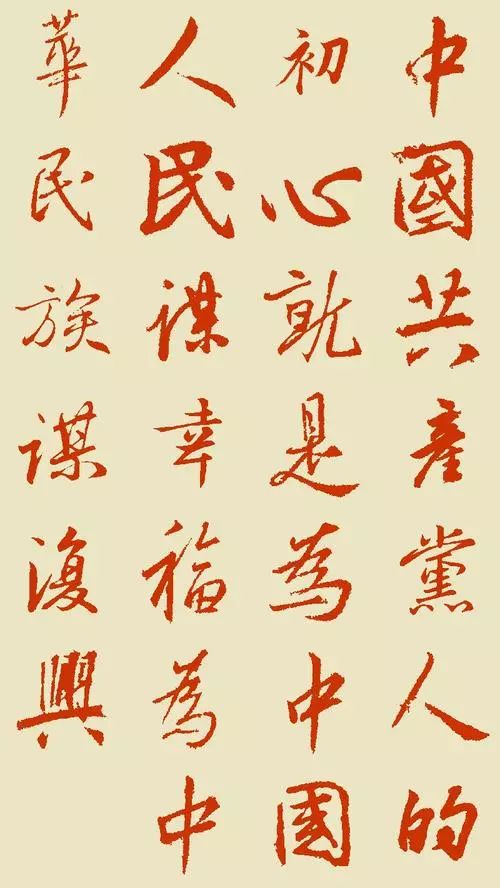 中國共產黨人的
初心就是為中國
人民謀幸福為中
華民族謀復興